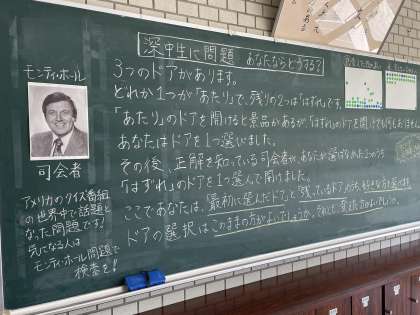 深中生に問題 あなたならどうする？
3つのドアがあります。
どれか1つが「あたり」で、残りの2つは「はずれ」です。
「あたり」のドアを開けると景品があるが、「はずれ」のドアを開けても何もありません。
あなたはドアを1つ選びました。
その後、正解を知っている司会者が、あなたが選ばなかった2つのうち
「はずれ」のドアを1つ選んで開けました。
ここであなたは、「最初に選んだドア」と「残っているドア」のうち、好きな方を選べます。
ドアの選択はこのままの方がよいでしょうか。それとも、変えた方がよいでしょうか。
モンティ・ホール
司会者
アメリカのクイズ番組
の世界中で話題に
なった問題です！
気になる人は
モンティ・ホール問題で
検索を！